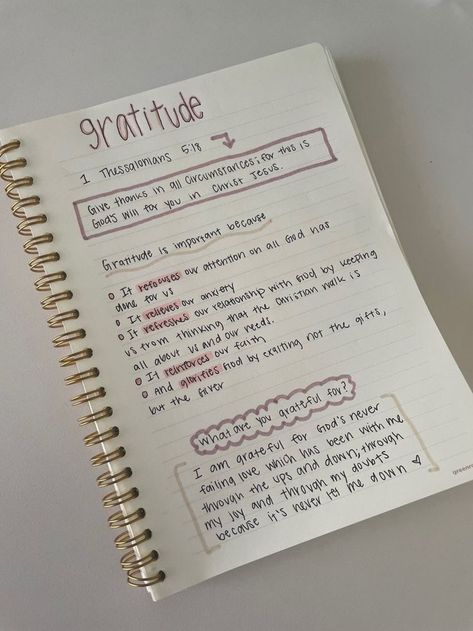 gratitude
1 Thessalonians 5:18
Give thanks in all circumstances; for this is
God's will for you in Christ Jesus.
Gratitude is important because
It refocuses our attention on all God has
done for us
It relieves our anxiety
It refreshes our relationship with God by keeping
us from thinking that the Christian walk is
all about us and our needs.
It reinforces our faith
And glorifies God by exalting not the gifts,
but the giver
What are you grateful for?
I am grateful for God's never
failing love which has been with me
through the ups and down; through
my joy and through my doubts
because it's never let me down